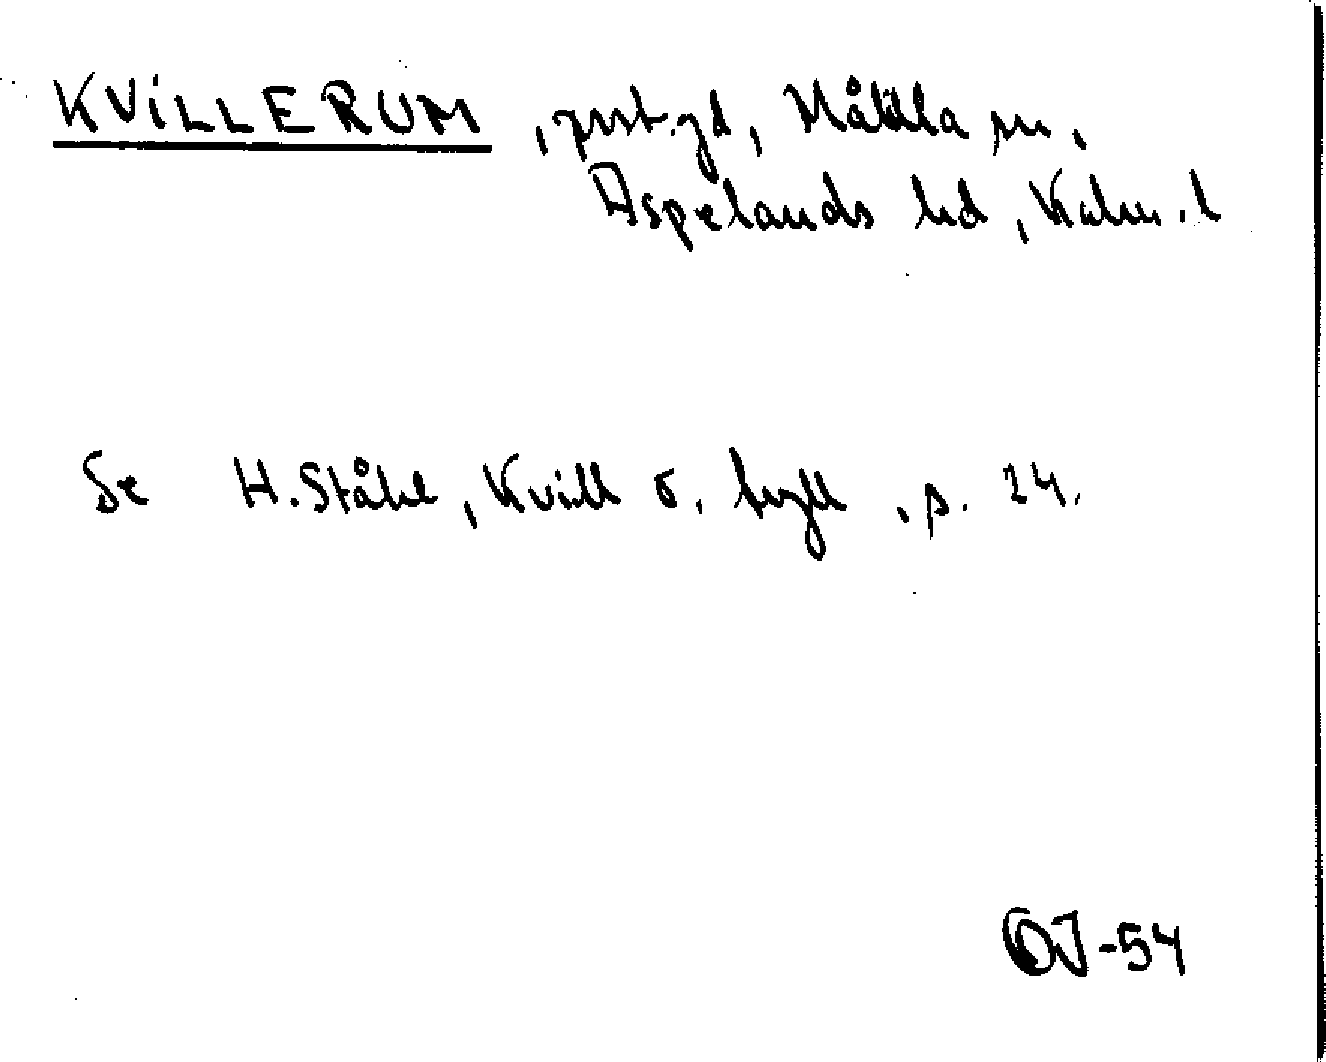 KVILLERUM, prst.gd, Målilla sn,
Aspelands hd, Kalm. l
Se H. Ståhl, Kvill o. tyll, s. 24.
OJ-54